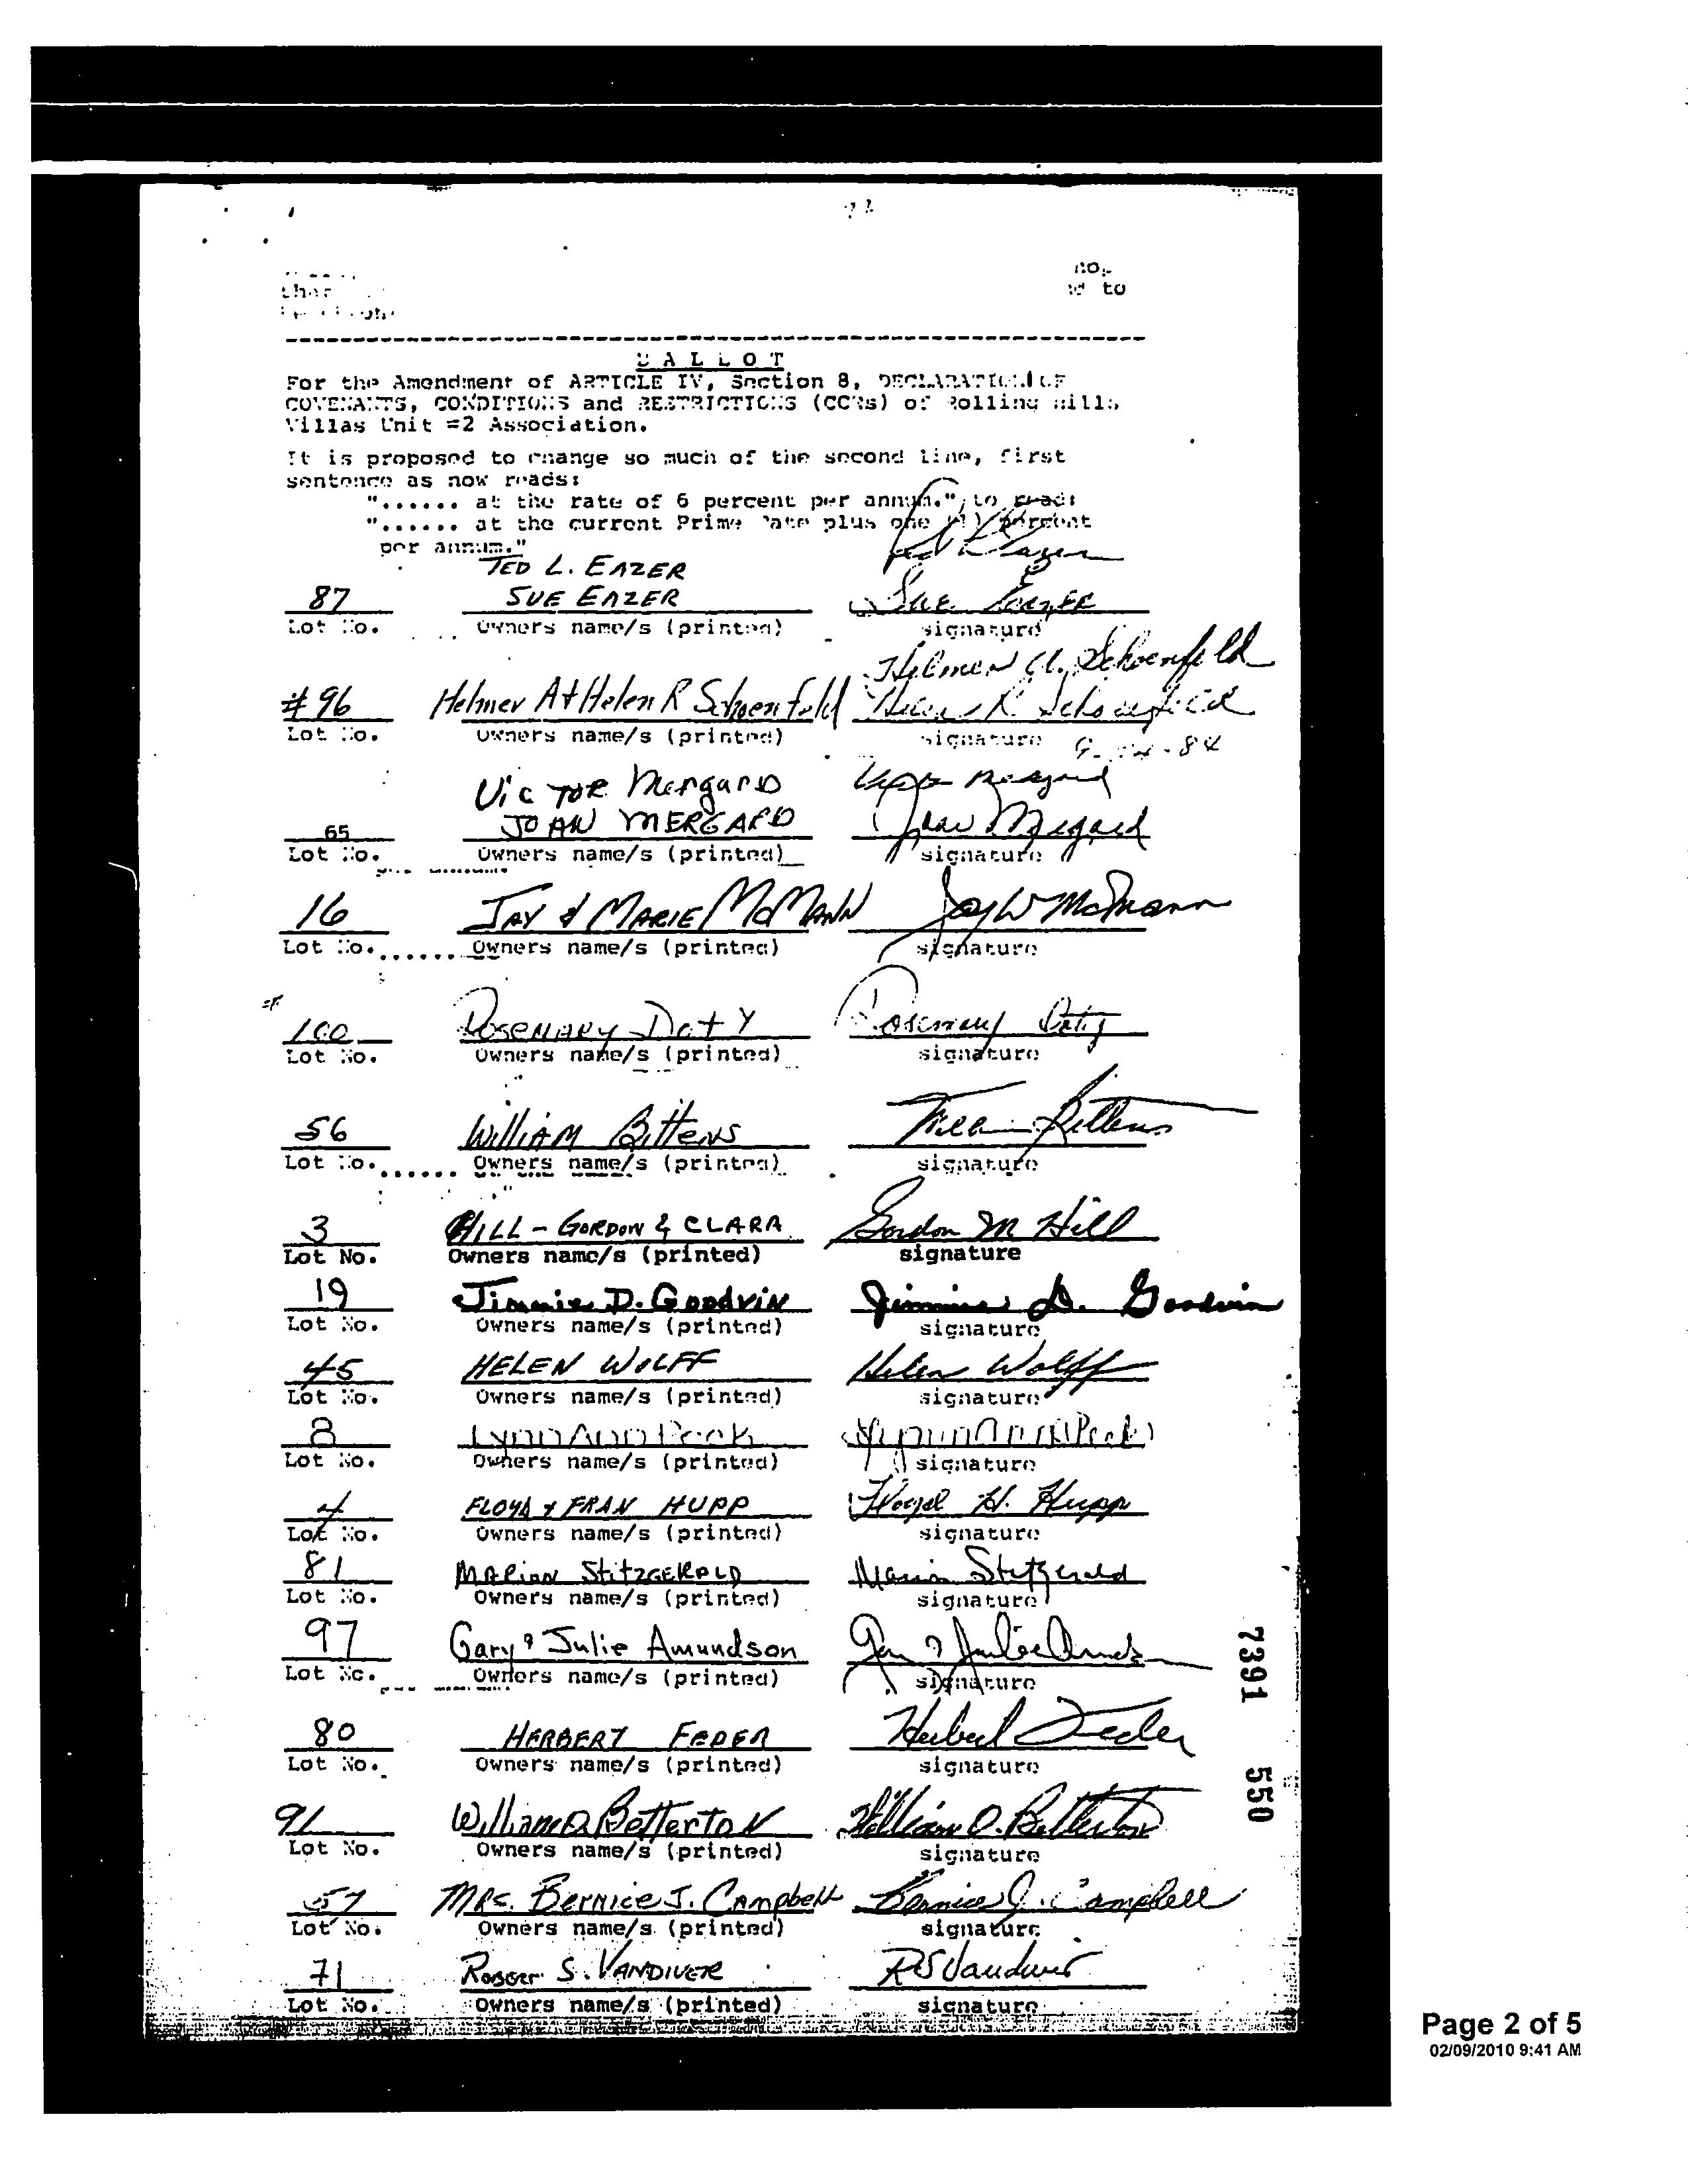 no
w to
BALLOT
For the Amendment of ARTICLE IV, Section 8, DECLARATION OF
COVENANTS, CONDITIONS and RESTRICTIONS (CCRs) of Rolling Hills
Villas Unit #2 Association.
It is proposed to change so much of the second line, first
sentence as now reads:
"...... at the rate of 6 percent per annum.", to read:
"...... at the current Prime Rate plus one (1) percent
per annum."
TED L. EAZER
87 SUE EAZER Sue Eazer
Lot No. Owners name/s (printed) signature
Helmer A. Schoenfeld
#96 Helmer A + Helen R Schoenfeld Helen R Schoenfeld
Lot No. Owners name/s (printed) signature
VICTOR MERGARD
65 JOAN MERGARD Joan Mergard
Lot No. Owners name/s (printed) signature
16 JAY & MARIE McMANN Jay W McMann
Lot No. Owners name/s (printed) signature
100 ROSEMARY DOTY Rosemary Doty
Lot No. Owners name/s (printed) signature
56 WILLIAM BITTENS William Bittens
Lot No. Owners name/s (printed) signature
3 HILL - GORDON & CLARA Gordon M Hill
Lot No. Owners name/s (printed) signature
19 Jimmie D. Goodvin Jimmie D. Goodvin
Lot No. Owners name/s (printed) signature
45 HELEN WOLFF Helen Wolff
Lot No. Owners name/s (printed) signature
8 Lynn Ann Peek Lynn Ann Peek
Lot No. Owners name/s (printed) signature
4 FLOYD & FRAN HUPP Floyd H. Hupp
Lot No. Owners name/s (printed) signature
81 MARION STITZGERALD Marion Stitzgerald
Lot No. Owners name/s (printed) signature
97 Gary & Julie Amundson
Lot No. Owners name/s (printed) signature
80 HERBERT FEDER Herbert Feder
Lot No. Owners name/s (printed) signature
91 William O Betterton William O. Betterton
Lot No. Owners name/s (printed) signature
57 MRS. Bernice J. Campbell Bernice J. Campbell
Lot No. Owners name/s (printed) signature
71 ROBERT S. VANDIVER RS Vandiver
Lot No. Owners name/s (printed) signature
7391 550
Page 2 of 5
02/09/2010 9:41 AM